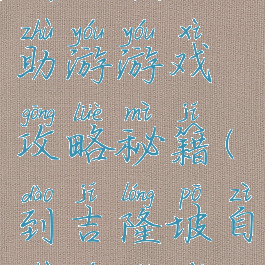 zhù yóu yóu xì
助游游戏
gōng lüè mì jí
攻略秘籍(
dào jí lóng pō zì
到吉隆坡自